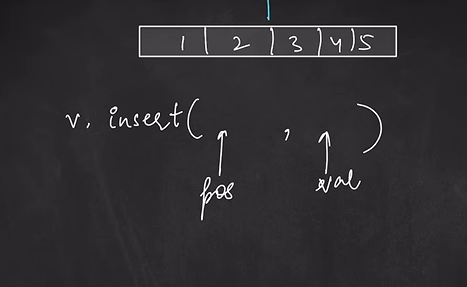 1 | 2 | 3 | 4 | 5
v. insert( , )
pos val